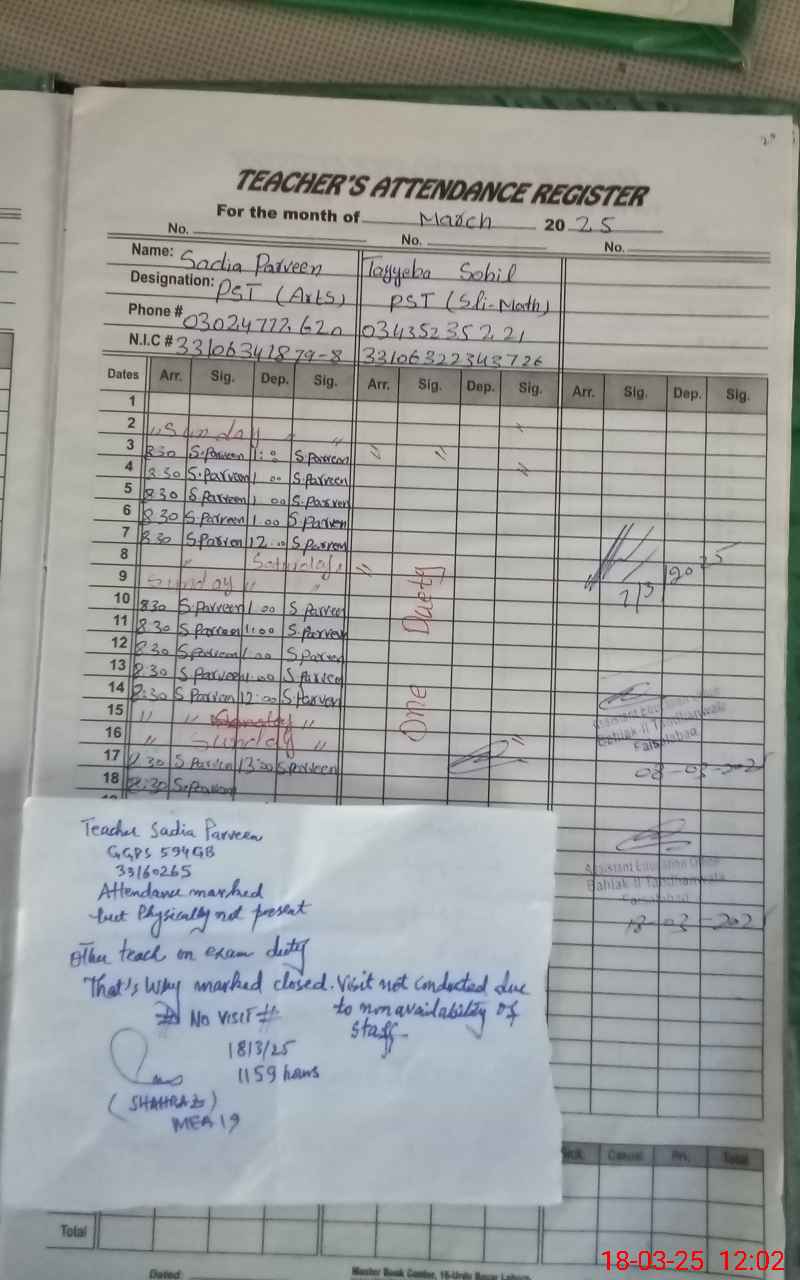 TEACHER'S ATTENDANCE REGISTER
For the month of March 2025
No. No. No.
Name: Sadia Parveen Tayyeba Sohil
Designation: PST (Arts) PST (Sci-Math)
Phone # 03024772620 03435235221
N.I.C # 33106341879-8 33106322343726
Dates Arr. Sig. Dep. Sig. Arr. Sig. Dep. Sig. Arr. Sig. Dep. Sig.
1
2 " Sunday "
3 8 30 S.Parveen 1:00 S.Parveen
4 8 30 S.Parveen 1 00 S.Parveen
5 8 30 S.Parveen 1 00 S.Parven
6 8 30 S.Parveen 1.00 S Parven
7 8 30 S.Parven 12:00 S Parven
7/3/2025
8 " Saturday "
9 Sunday "
10 8 30 S.Parveen 1 00 S Parveen
11 8:30 S Parveen 1:00 S.Parven
12 8:30 S.Parveen 1:00 S.Parven
13 8:30 S Parveen 1:00 S Parveen
14 8:30 S Parven 12:00 S Parven
15 " " "
16 " Sunday "
17 11 30 S Parven 13:00 S Parveen
18 8:30 S.Parven
One Duety
Assistant Education Officer
Bahlak-II Tandlianwala
Faisalabad
08-03-202
Assistant Education Officer
Bahlak-II Tandlianwala
Faisalabad
18-03-202
Teacher Sadia Parveen
GGPS 594GB
33160265
Attendance marked
but Physically not present
Other teach on exam duty
That's why marked closed. Visit not conducted due
to nonavailability of
staff
# No VISIT #
18/3/25
1159 hours
(SHAHRAZ)
MEA 19
Sick Casual Pri. Total
Total
Dated:
Master Book Center, 16-Urdu Bazar Lahore
18-03-25 12:02